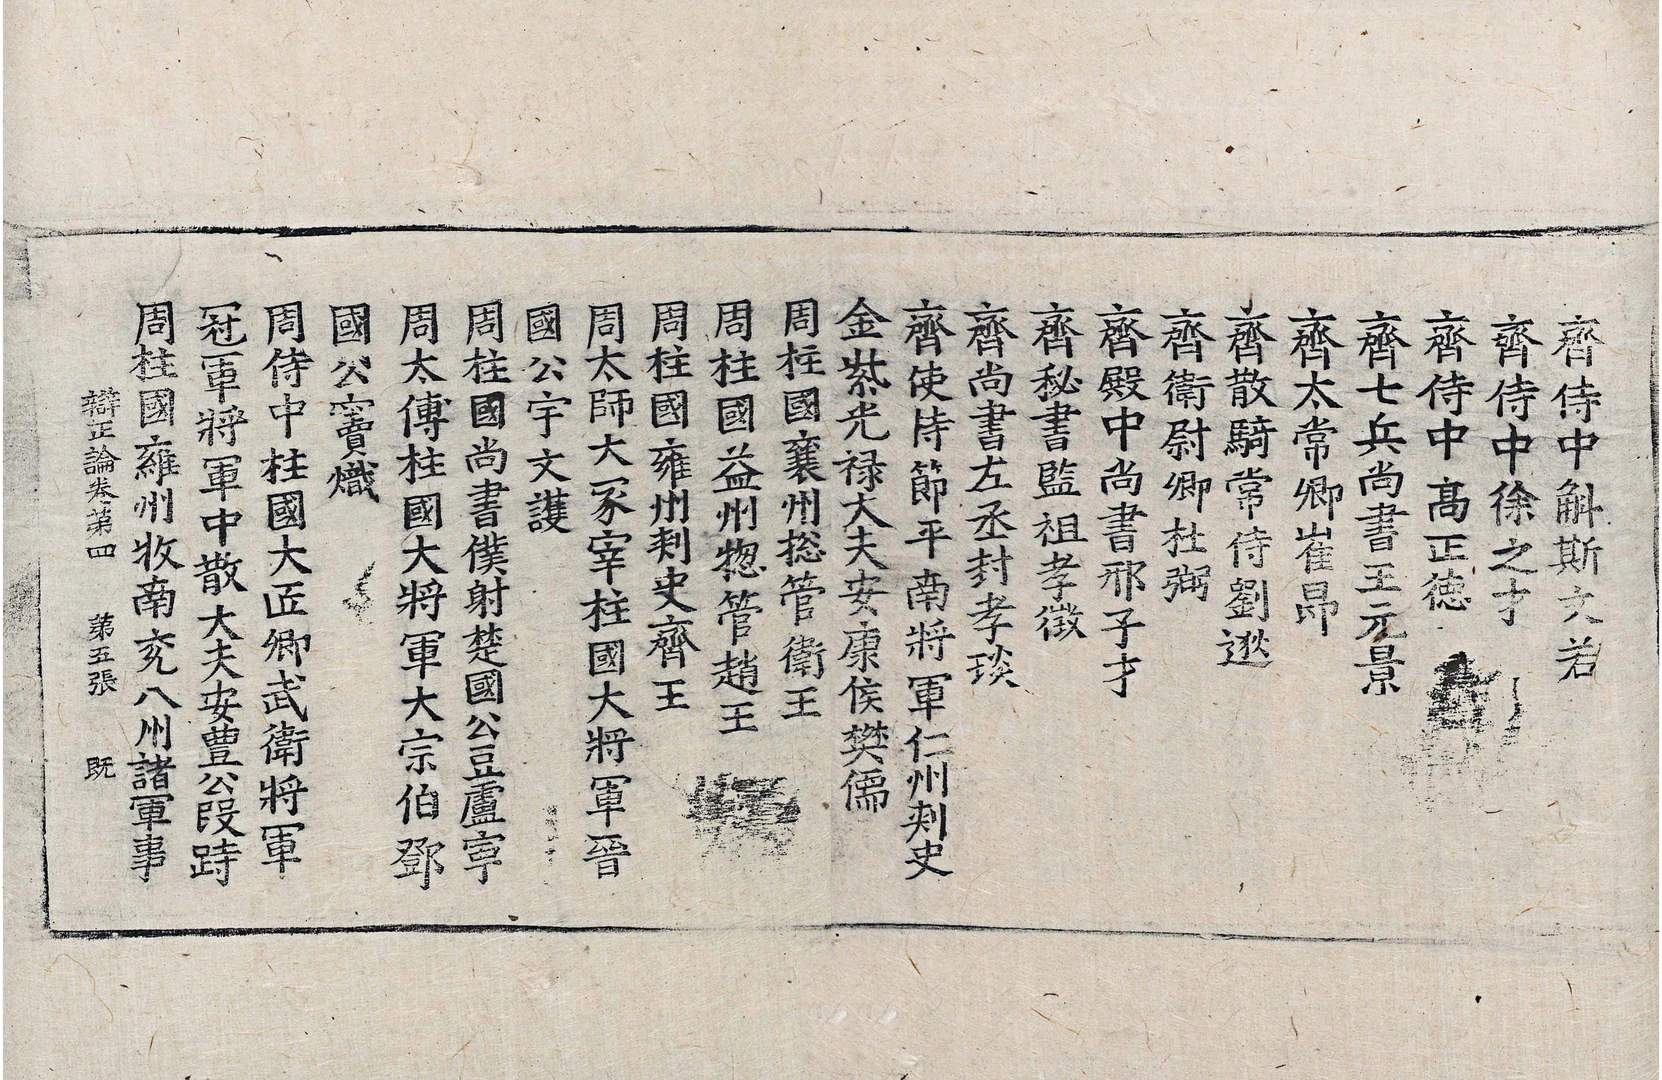 齊侍中斛斯文若
齊侍中徐之才
齊侍中高正德
齊七兵尚書王元景
齊太常卿崔昂
齊散騎常侍劉逖
齊衛尉卿杜弼
齊殿中尚書邢子才
齊秘書監祖孝徵
齊尚書左丞封孝琰
齊使持節平南將軍仁州刺史
金紫光祿大夫安康侯樊儒
周柱國襄州揔管衛王
周柱國益州揔管趙王
周柱國雍州刺史齊王
周太師大冢宰柱國大將軍晉
國公宇文護
周柱國尚書僕射楚國公豆盧寧
周太傅柱國大將軍大宗伯鄧
國公竇熾
周侍中柱國大匠卿武衛將軍
冠軍將軍中散大夫安豊公段畤
周柱國雍州牧南兖八州諸軍事
辯正論卷第四 第五張 既